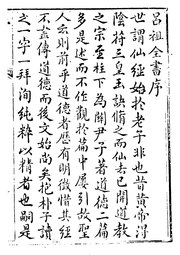 呂祖全書序
世謂仙經始於老子非也昔黃帝得
陰符玉皇玉訣脩之而仙去已開道教
之宗至柱下為關尹子著道德二篇
多是述而不作觀於篇中屢引故聖
人云則前乎道德者歷有明徵惜其經
不盡傳道德而後文始尚矣抱朴子讀
之一字一拜洵純粹以精者也嗣是